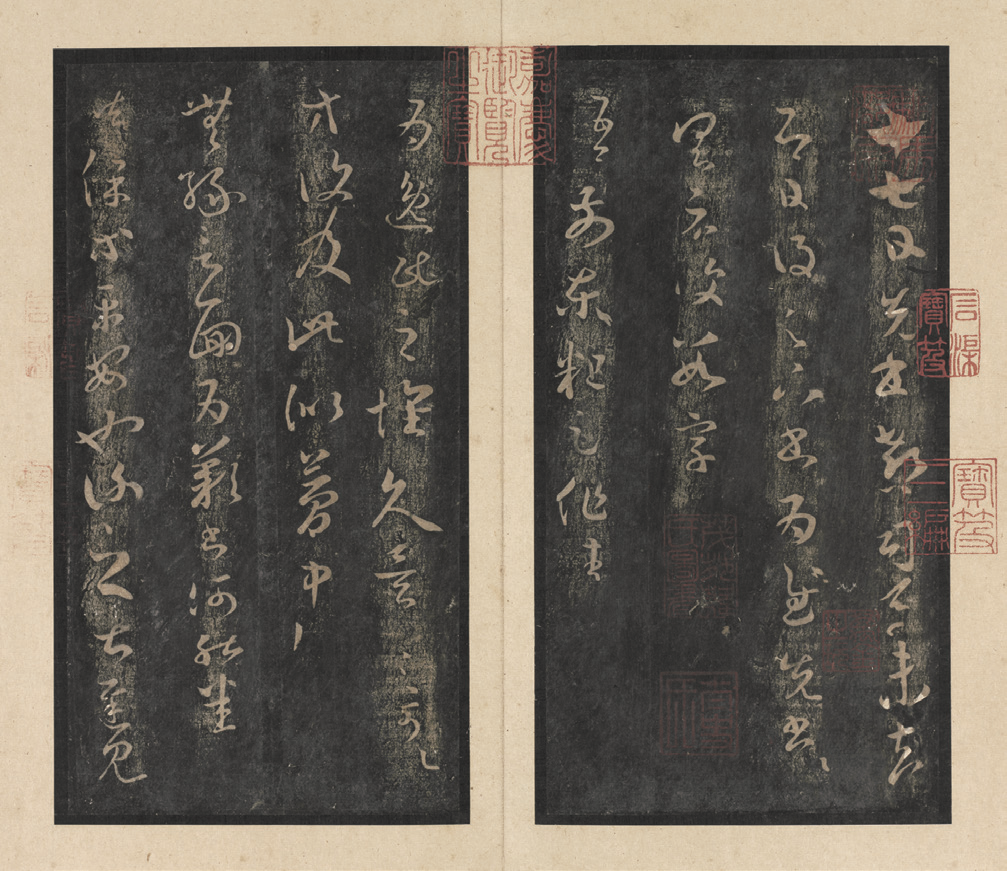 十七日先書郗司馬未去
即日得足下書為慰先書以
具示復數字
吾前東粗足作佳
為逸民之懷久矣足下何以
等復及此似夢中
無緣言面為歎書何能悉
龍保等平安也謝之甚遲見
嘉慶御覽之寶
石渠寶笈
寶笈三編